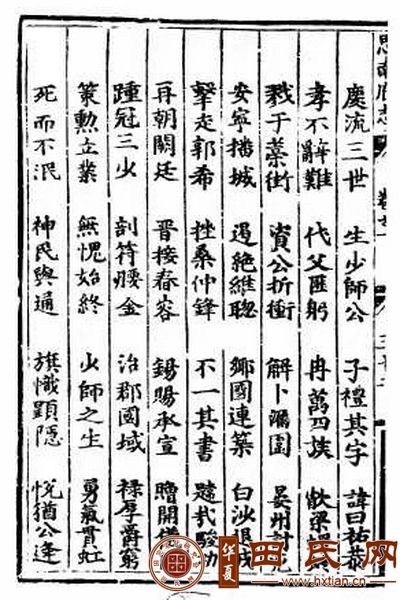 思南府志
慶流三世 生少師公 子禮其字 諱曰祐恭
孝不辭難 代父匪躬 冉萬四族
戮于藁街 資公折衝 解卜漏圍 晏州討
安寧播城 遏絶維聰 國連築 白沙
擊走郭希 挫桑仲鋒 不一其書 哉駿功
再朝闕廷 晋接春容 錫賜承宣 開
踵冠三少 剖符腰金 治郡國域 祿厚爵窮
策勲立業 無愧始終 少師之生 勇氣貫虹
死而不泯 神民與通 旗幟顯隱 恍猶公逢
华夏 田氏网
www.hxtian.cn